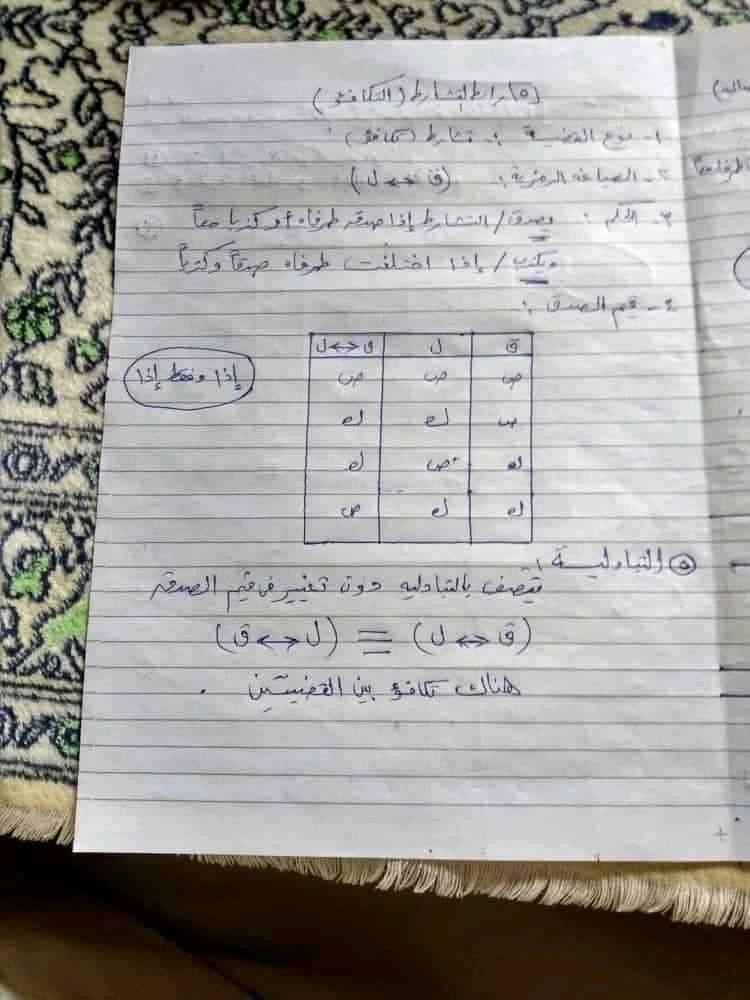 ٥) رابط التشارط (التكافؤ)
١- نوع القضية : تشارط (تكافؤ)
٢- الصياغة الرمزية : (ق ↔ ل)
٣- الحكم : يصدق / التشارط إذا صدقه طرفاه أو كذبا معاً
ويكذب / إذا اختلفت طرفاه صدقاً وكذباً
٤- قيم الصدق :
ق ل ق ↔ ل
ص ص ص
ص ك ك
ك ص ك
ك ك ص
إذا وفقط إذا
٥ التبادلية :
تتصف بالتبادليه دون تغيير في قيم الصدقه
(ق ↔ ل) ≡ (ل ↔ ق)
هناك تكافؤ بين القضيتين .